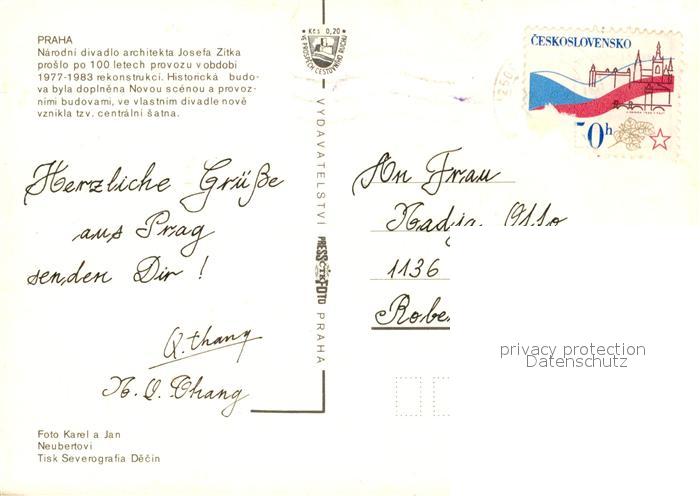 PRAHA
Národní divadlo architekta Josefa Zítka
prošlo po 100 letech provozu v období
1977-1983 rekonstrukcí. Historická budo-
va byla doplněna Novou scénou a provoz-
ními budovami, ve vlastním divadle nově
vznikla tzv. centrální šatna.
Kčs 0,20
VE PROSPĚCH CESTOVNÍHO RUCHU
ČESKOSLOVENSKO
50h
Herzliche Grüße
aus Prag
senden Dir !
Q. thang
N. Q. Thang
VYDAVATELSTVÍ PRESSFOTO PRAHA
An Frau
Nadja
1136
Robe
privacy protection
Datenschutz
Foto Karel a Jan
Neubertovi
Tisk Severografia Děčín